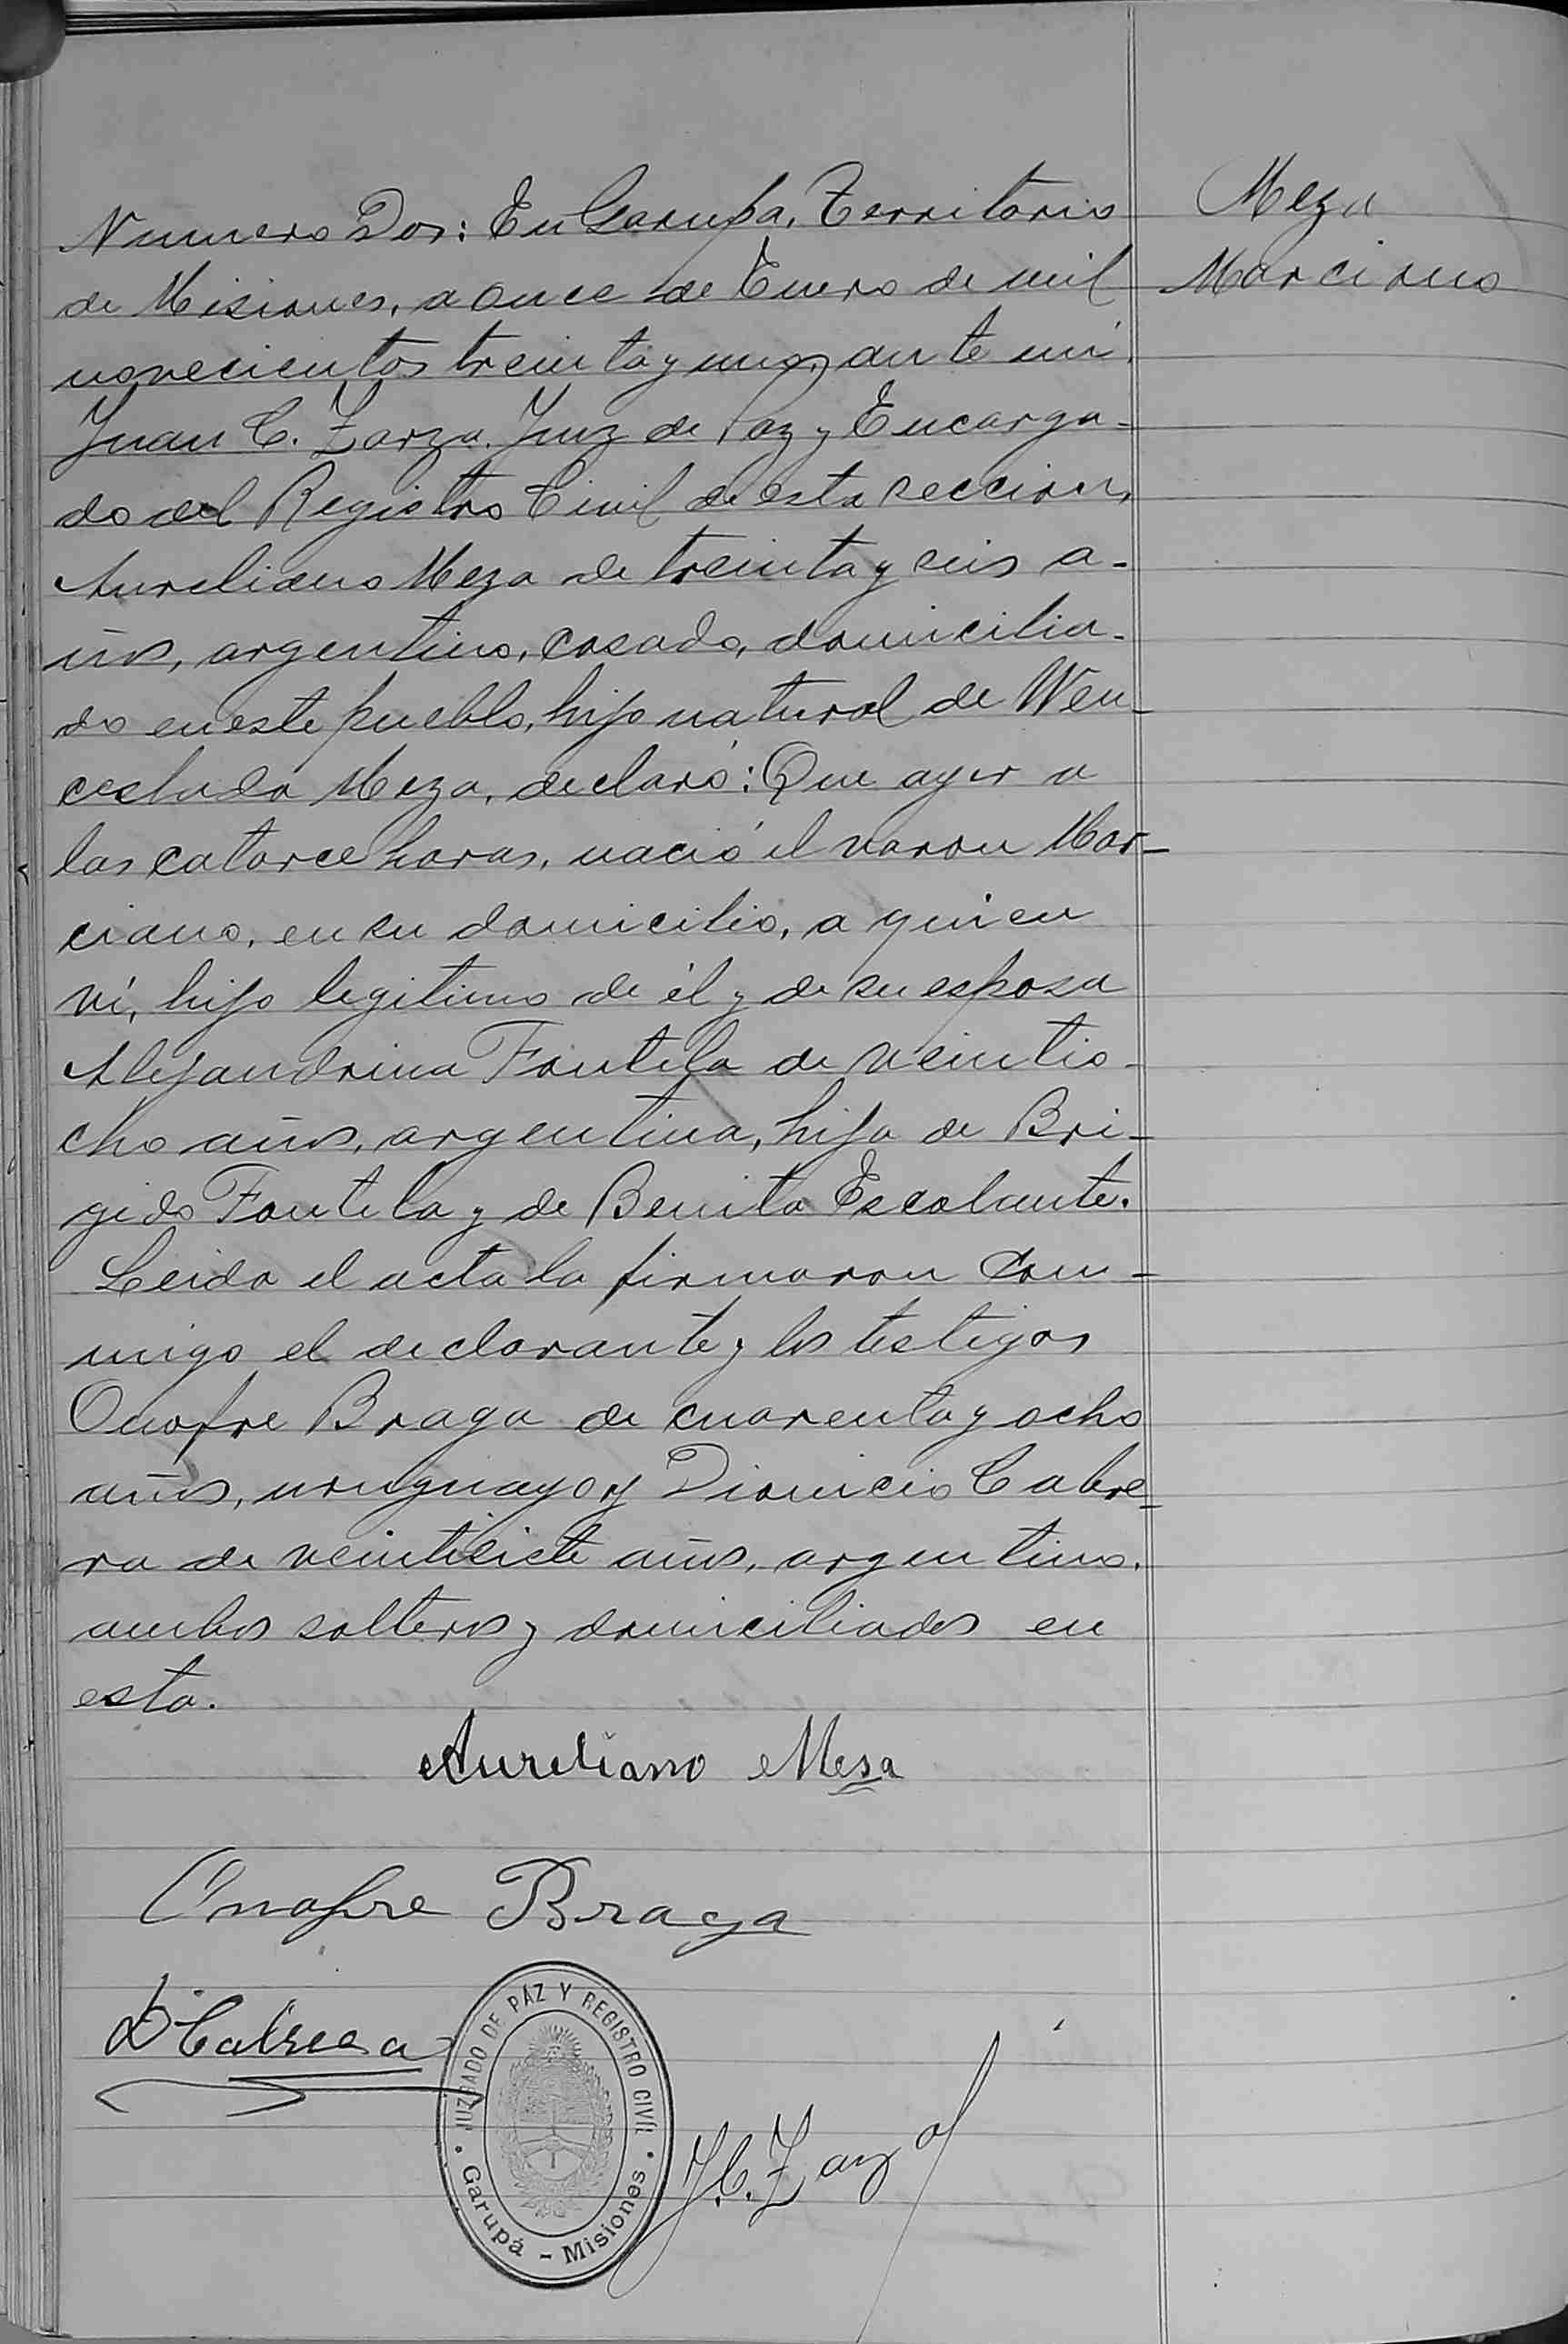 Meza
Marciano
Numero Dos: En Garupa, Territorio
de Misiones, a once de Enero de mil
novecientos treinta y uno, ante mi,
Juan C. Zarza, Juez de Paz y Encarga-
do del Registro Civil de esta seccion,
Aureliano Meza de treinta y seis a-
ños, argentino, casado, domicilia-
do en este pueblo, hijo natural de Wen-
ceslada Meza, declaró: Que ayer a
las catorce horas, nació el varon Mar-
ciano, en su domicilio, a quien
ví, hijo legitimo de él y de su esposa
Alejandrina Fontela de veintio-
cho años, argentina, hija de Bri-
gido Fontela y de Benita Escalante.
Leida el acta la firmaron con-
migo el declarante y los testigos
Onofre Braga de cuarenta y ocho
años, uruguayo y Dionicio Cabre-
ra de veintisiete años, argentino,
ambos solteros y domiciliados en
esta.
Aureliano Mesa
Onofre Braga
D Cabrera
JUZGADO DE PAZ Y REGISTRO CIVIL
Garupá - Misiones
J. C. Zarza